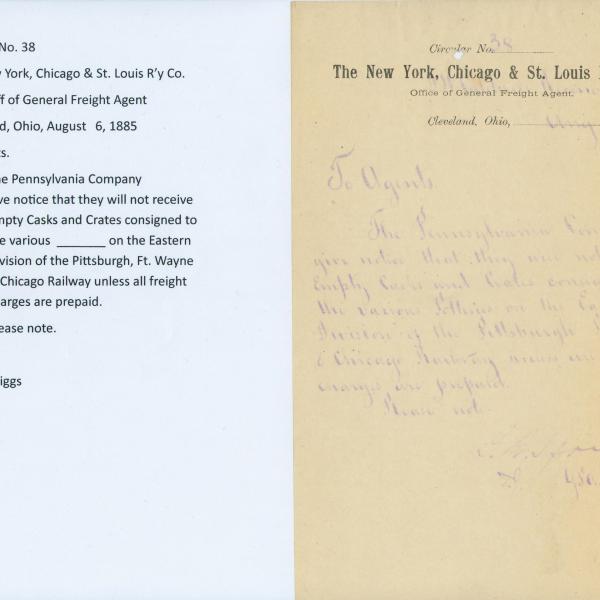 No. 38
w York, Chicago & St. Louis R'y Co.
ff of General Freight Agent
d, Ohio, August 6, 1885
ts.
he Pennsylvania Company
ve notice that they will not receive
mpty Casks and Crates consigned to
e various _______ on the Eastern
vision of the Pittsburgh, Ft. Wayne
Chicago Railway unless all freight
arges are prepaid.
ease note.
iggs
Circular No. 38
The New York, Chicago & St. Louis R
Office of General Freight Agent.
Cleveland, Ohio, Aug
To Agents
The Pennsylvania Com
give notice that they
Empty Casks and Crates cons
the various Potteries on the Ea
Division of the Pittsburgh
& Chicago Railway unless
charges are prepaid.
Please note.